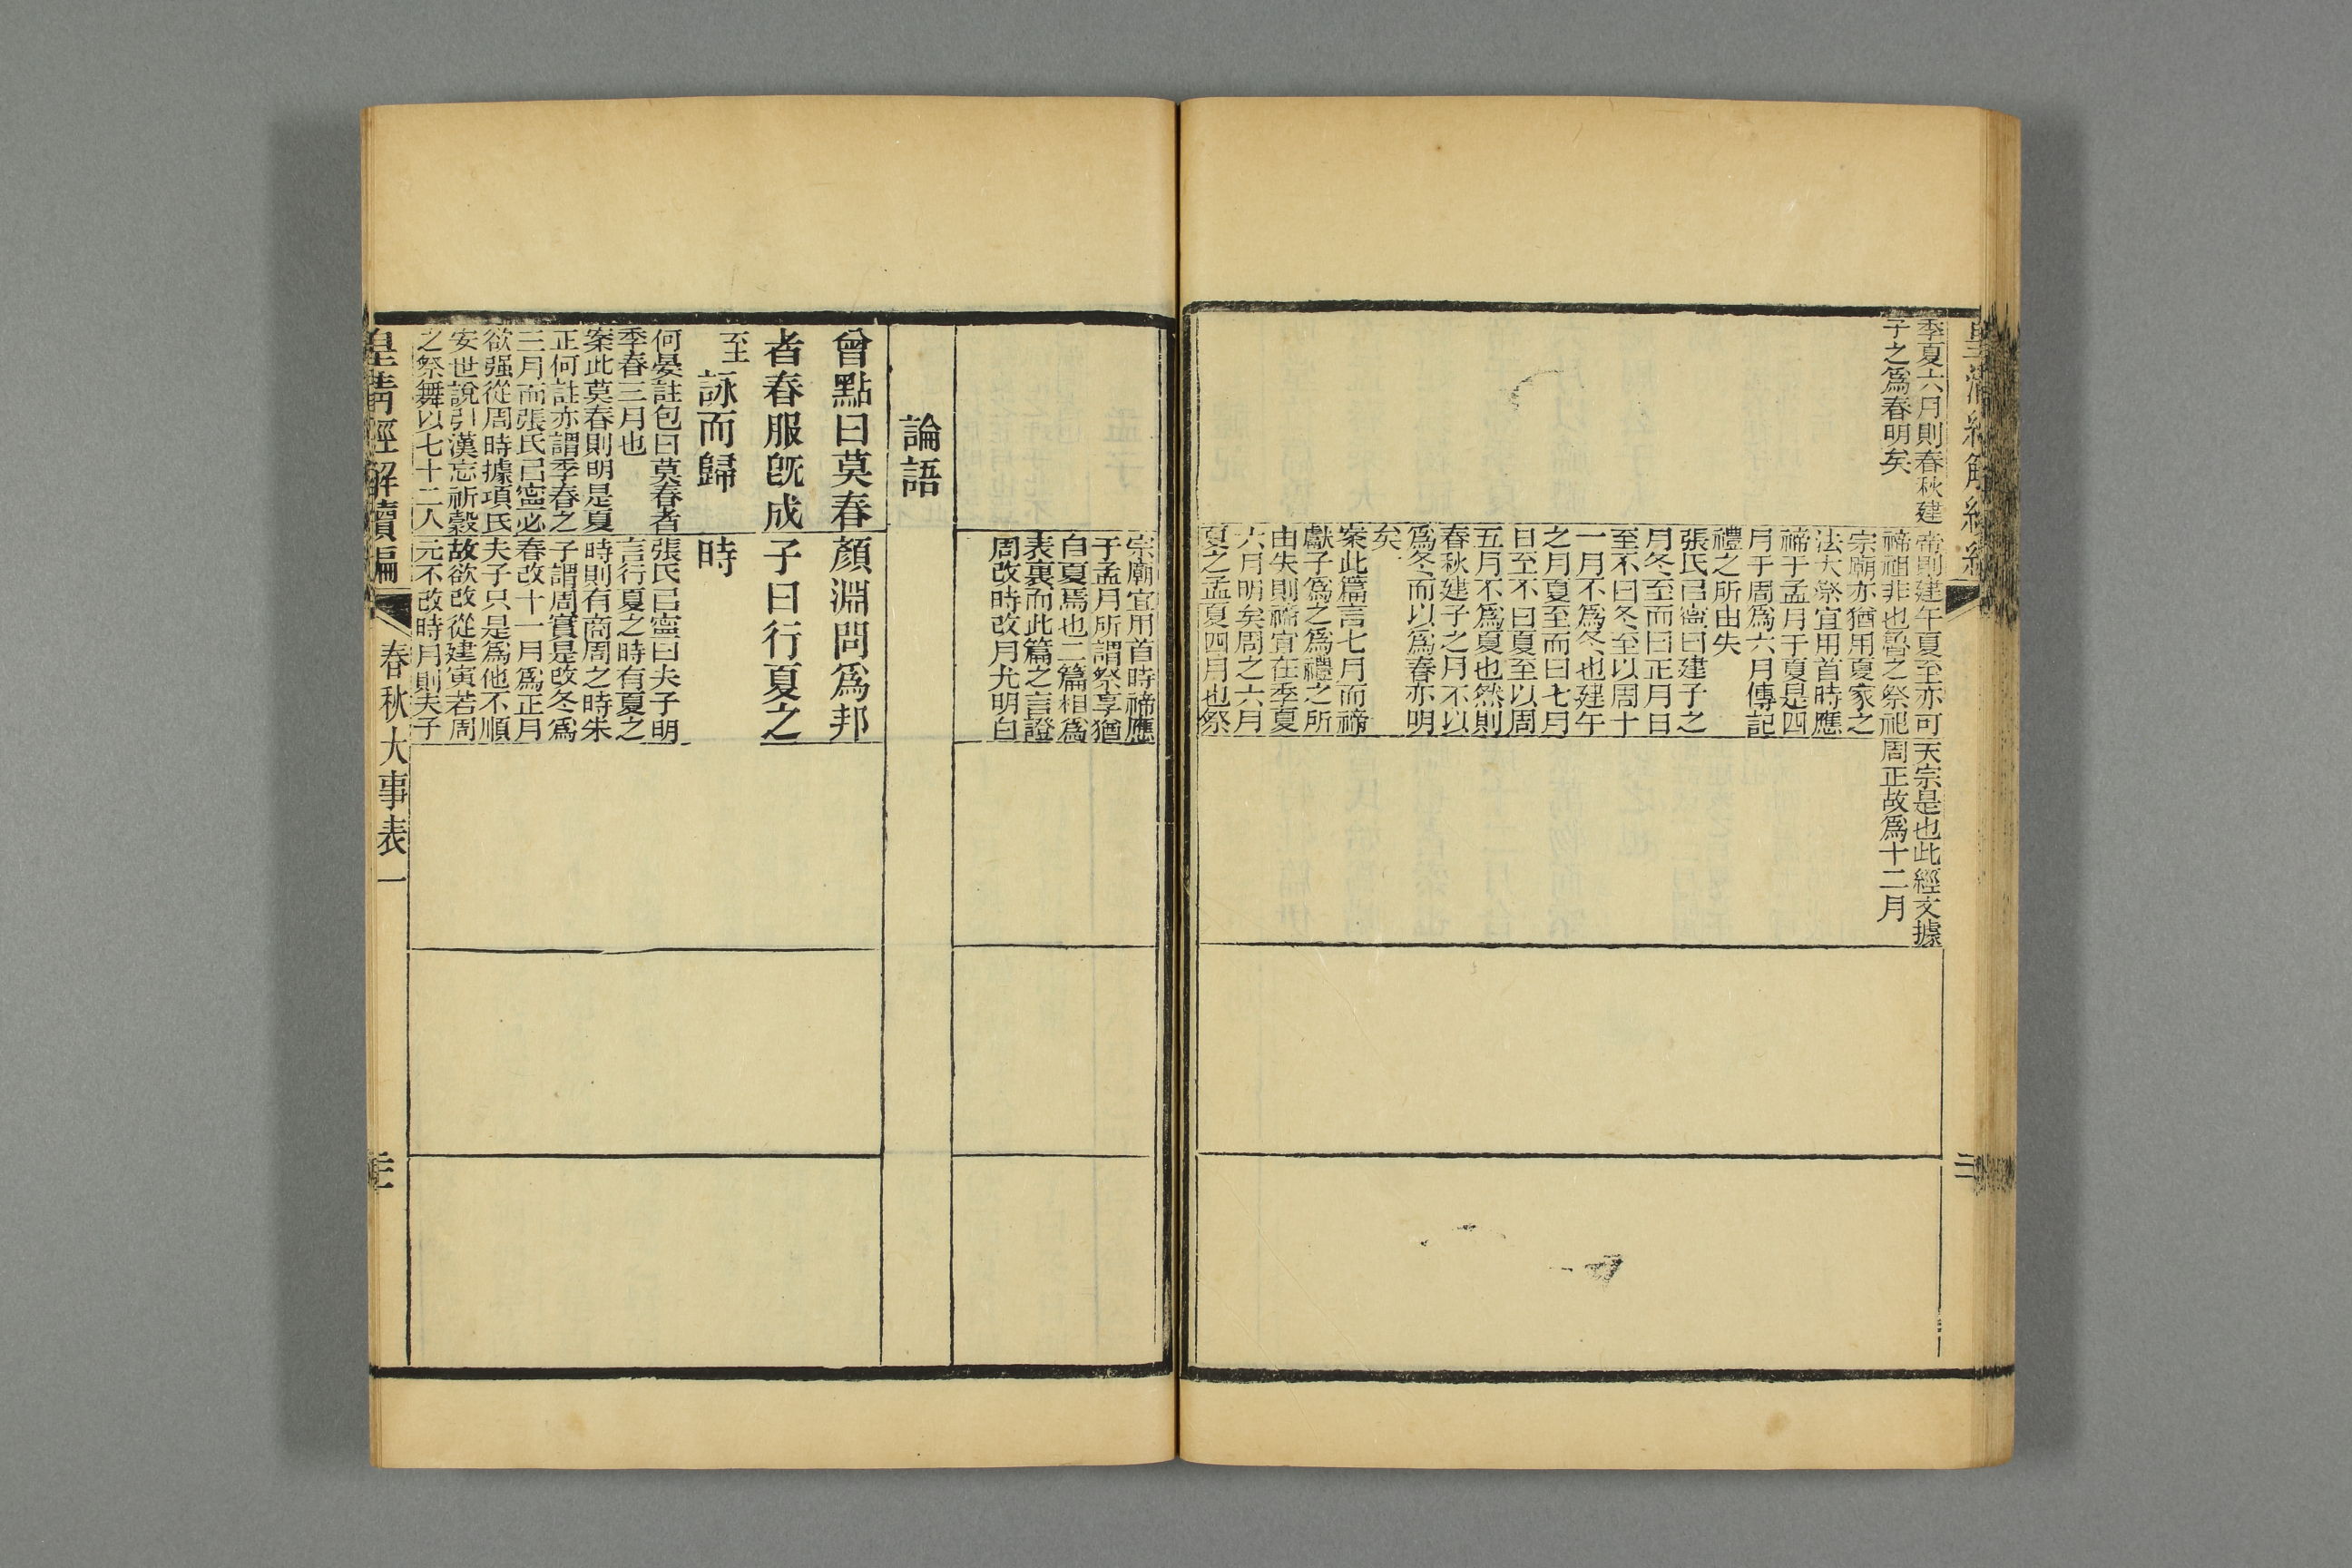 季夏六月則春秋建
子之爲春明矣
帝則建午夏至亦可
禘祖非也魯之祭祀
宗廟亦猶用夏家之
法大祭宜用首時應
禘于孟月于夏是四
月于周爲六月傳記
禮之所由失
張氏已寧曰建子之
月冬至而曰正月日
至不曰冬至以周十
一月不爲冬也建午
之月夏至而曰七月
日至不曰夏至以周
五月不爲夏也然則
春秋建子之月不以
爲冬而以爲春亦明
矣
案此篇言七月而禘
獻子爲之爲禮之所
由失則禘宜在季夏
六月明矣周之六月
夏之孟夏四月也祭
天宗是也此經文據
周正故爲十二月
宗廟宜用首時禘應
于孟月所謂祭享猶
自夏焉也二篇相爲
表裏而此篇之言證
周改時改月尤明白
論語
曾點曰莫春
者春服旣成
至詠而歸
何晏註包曰莫春者
季春三月也
案此莫春則明是夏
正何註亦謂季春之
三月而張氏已寧必
欲强從周時據項氏
安世說引漢志祈穀
之祭舞以七十二人
顏淵問爲邦
子曰行夏之
時
張氏已寧曰夫子明
言行夏之時有夏之
時則有商周之時朱
子謂周實是改冬爲
春改十一月爲正月
夫子只是爲他不順
故欲改從建寅若周
元不改時月則夫子
皇清經解續編
春秋大事表一